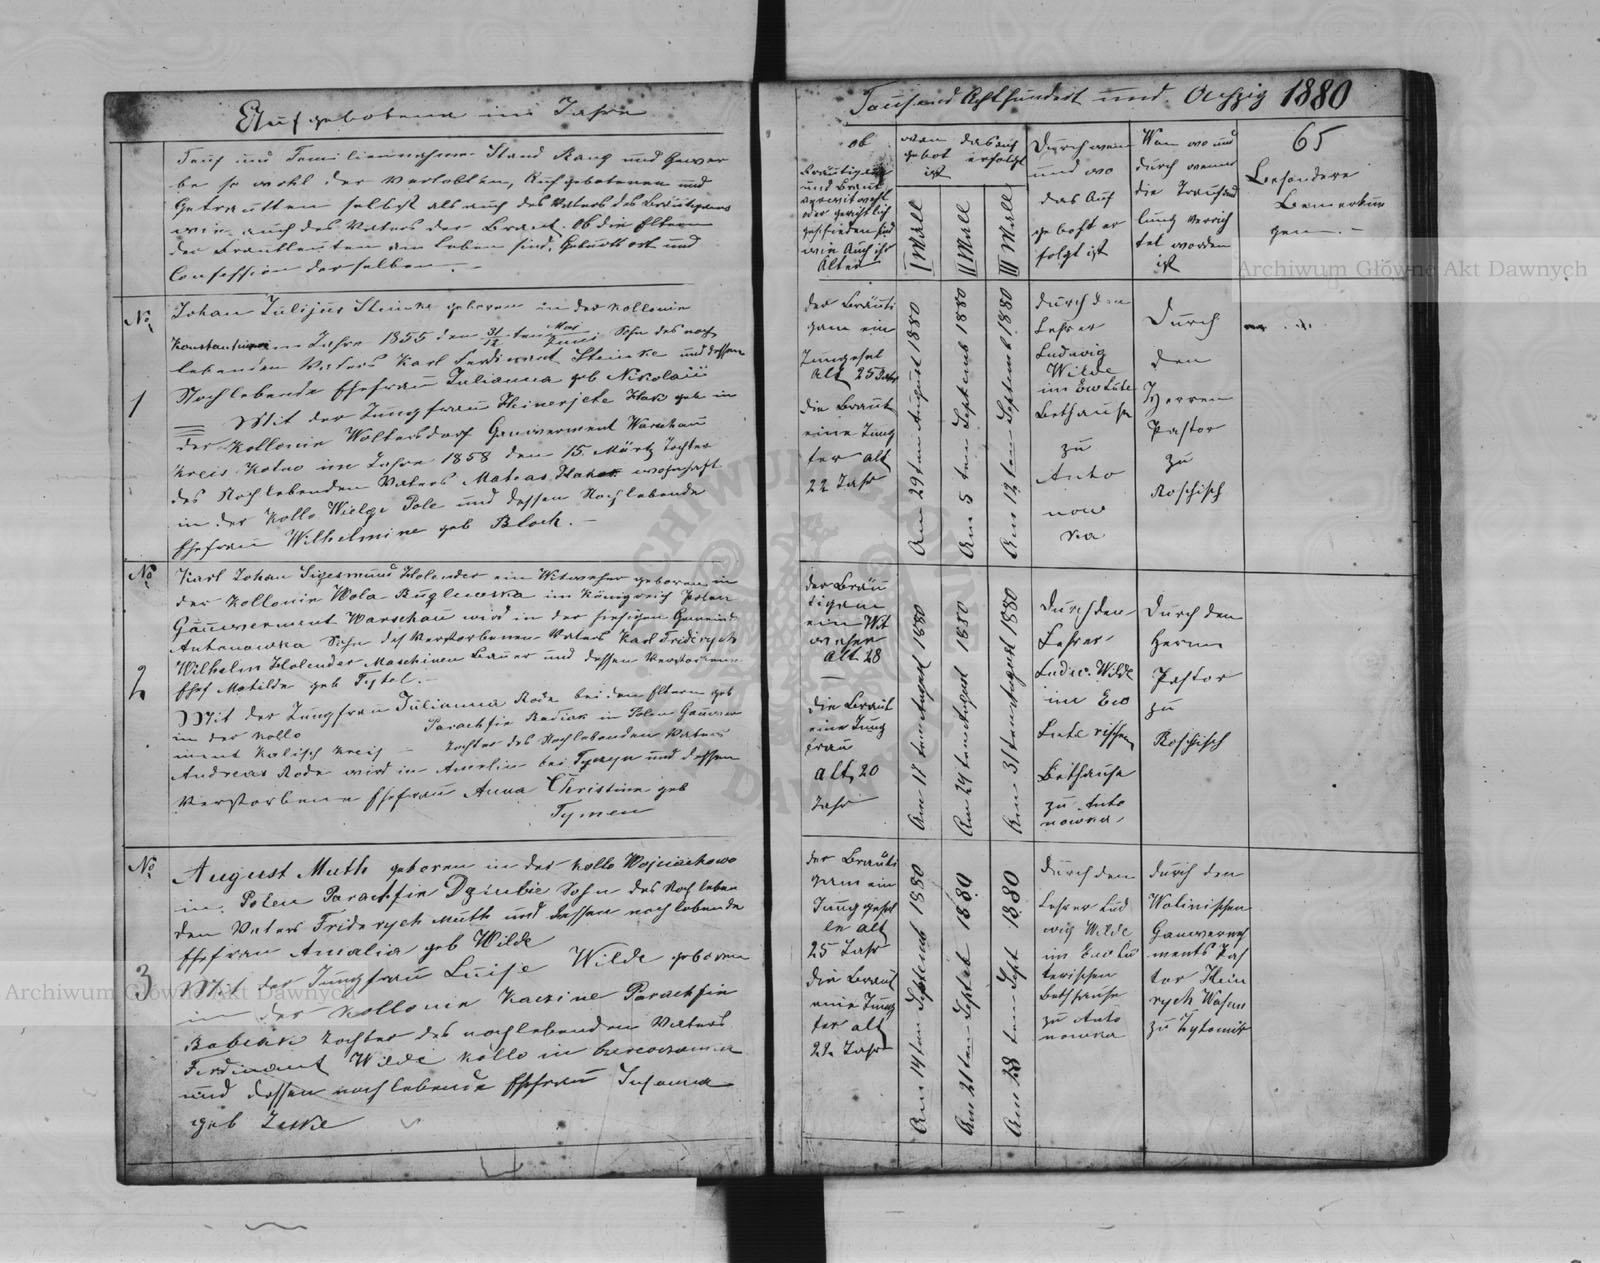 Aufgebotene im Jahre
Tauf und Familiennahme Stand Rang und Gewer
be so wohl der Verlobten, Aufgebotenen und
Getrautten selbst als auch des Vaters des Bräutigams
wie auch des Vaters der Braut. Ob die Eltern
der Brautleuten am Leben sind, Geburtt ort und
Confession derselben. –
No
1
Johan Julijus Steinke geboren in der Kollonie
im Jahre 1855 den ten Sohn des noch
lebenden Vaters Karl Ferdinant Steinke und dessen
Noch lebende Ehefrau Julianna geb Nikolaii
Mit der Jungfrau Heinerjete geb in
der Kollonie Woltersdorf Gauwerment Warschau
Kreis im Jahre 1858 den 15 Märtz Tochter
des Noch lebenden Vaters Mateas wohnhaft
in der Kollo Wielge Pole und dessen Noch lebende
Ehefrau Wilhelmine geb Block. –
No
2
Karl Johan Sigesmund Holender ein Witweher geboren in
der Kollonie Wola im Königreich Polen
Gauwerment Warschau wird in der hiesigen Gemeind
Antonowka Sohn des Verstorbenen Vaters Karl Friderych
Wilhelm Holender Maschinen Bauer und dessen Verstorbene
Ehef Matilde geb
Mit der Jungfrau Julianna Rode bei den Eltern geb
in der Kollo Parachfie Badiak in Polen Gauwer
ment Kalisch Kreis – Tochter des Noch lebenden Vaters
Andreas Rode wird in Amelin bei und dessen
Verstorbene Ehefrau Anna Christine geb
Tymen
No
3
August Muth geboren in der Kollo Wojciachowo
in Polen Parachfie Dzinbie Sohn des Noch leben
den Vaters Friderych Muth und dessen noch lebende
Ehefrau Amalia geb Wilde
Mit der Jungfrau Luise Wilde geboren
in der Kollonie Kaczine Parachfie
Babiak Tochter des noch lebenden Vaters
Ferdinant Wilde Kollo in
und dessen noch lebende Ehefrau
geb Zeske
Tausend Achthundert und Achzig 1880
65
ob
Bräutigam
und Braut
verwitweht
oder gerichtlich
geschieden sind
wie Auch ihr
Alter
wan das auf
gebot erfolgt
ist
I Mall
II Mall
III Mall
Durch wem
und wo
das Auf
gebott er
folgt ist
Wan wo und
durch wemm
die Trauhand
lung verrich
tet worden
ist
Besondere
Bemerkun
gen. –
der Bräuti
gam ein
Junggesel
Alt 25 Jahr
die Braut
eine Jung
fer alt
22 Jahr
Am 29ten August 1880
Am 5 ten Septemb 1880
Am 12 ten Septemb 1880
Durch den
Lehrer
Ludwig
Wilde
im Ew Lute
Bethause
zu
Anto
now
ka
Durch
den
Herren
Pastor
zu
Roschisch
der Bräu
tigam
ein Wit
weher
alt 28
–
die Braut
eine Jung
frau
alt 20
Jahr
Am 17 ten August 1880
Am 24 ten August 1880
Am 31 ten August 1880
Durch den
Lehrer
Ludw. Wilde
im Ew
Lute rischen
Bethause
zu Anto
nowka
Durch den
Herrn
Pastor
zu
Roschisch
der Bräuti
gam ein
Junggesel
le alt
25 Jahr
die Braut
eine Jung
fer alt
22 Jahr
Am 14 ten Septemb 1880
Am 21 ten Septeb 1880
Am 28 ten Sept 1880
durch den
Lehrer Lud
wig Wilde
im Ew Lu
terischen
Bethause
zu Anto
nowka
durch den
Wolinischen
Gauwerne
ments Pas
tor Hein
rych Wasem
zu Zytomir
Archiwum Główne Akt Dawnych
Archiwum Główne Akt Dawnych